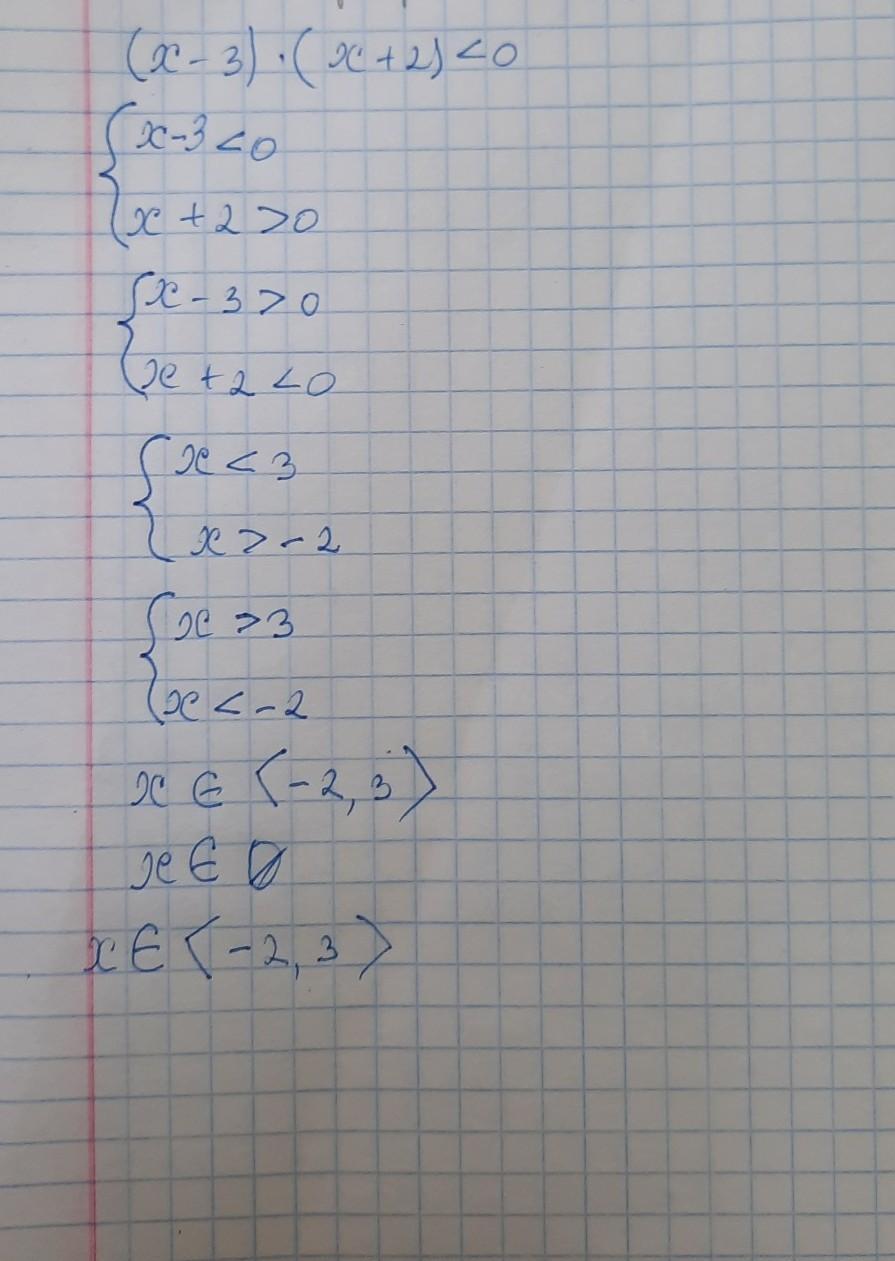 (x-3)·(x+2)<0
{x-3<0
x+2>0
{x-3>0
x+2<0
{x<3
x>-2
{x>3
x<-2
x∈⟨-2,3⟩
x∈∅
x∈⟨-2,3⟩